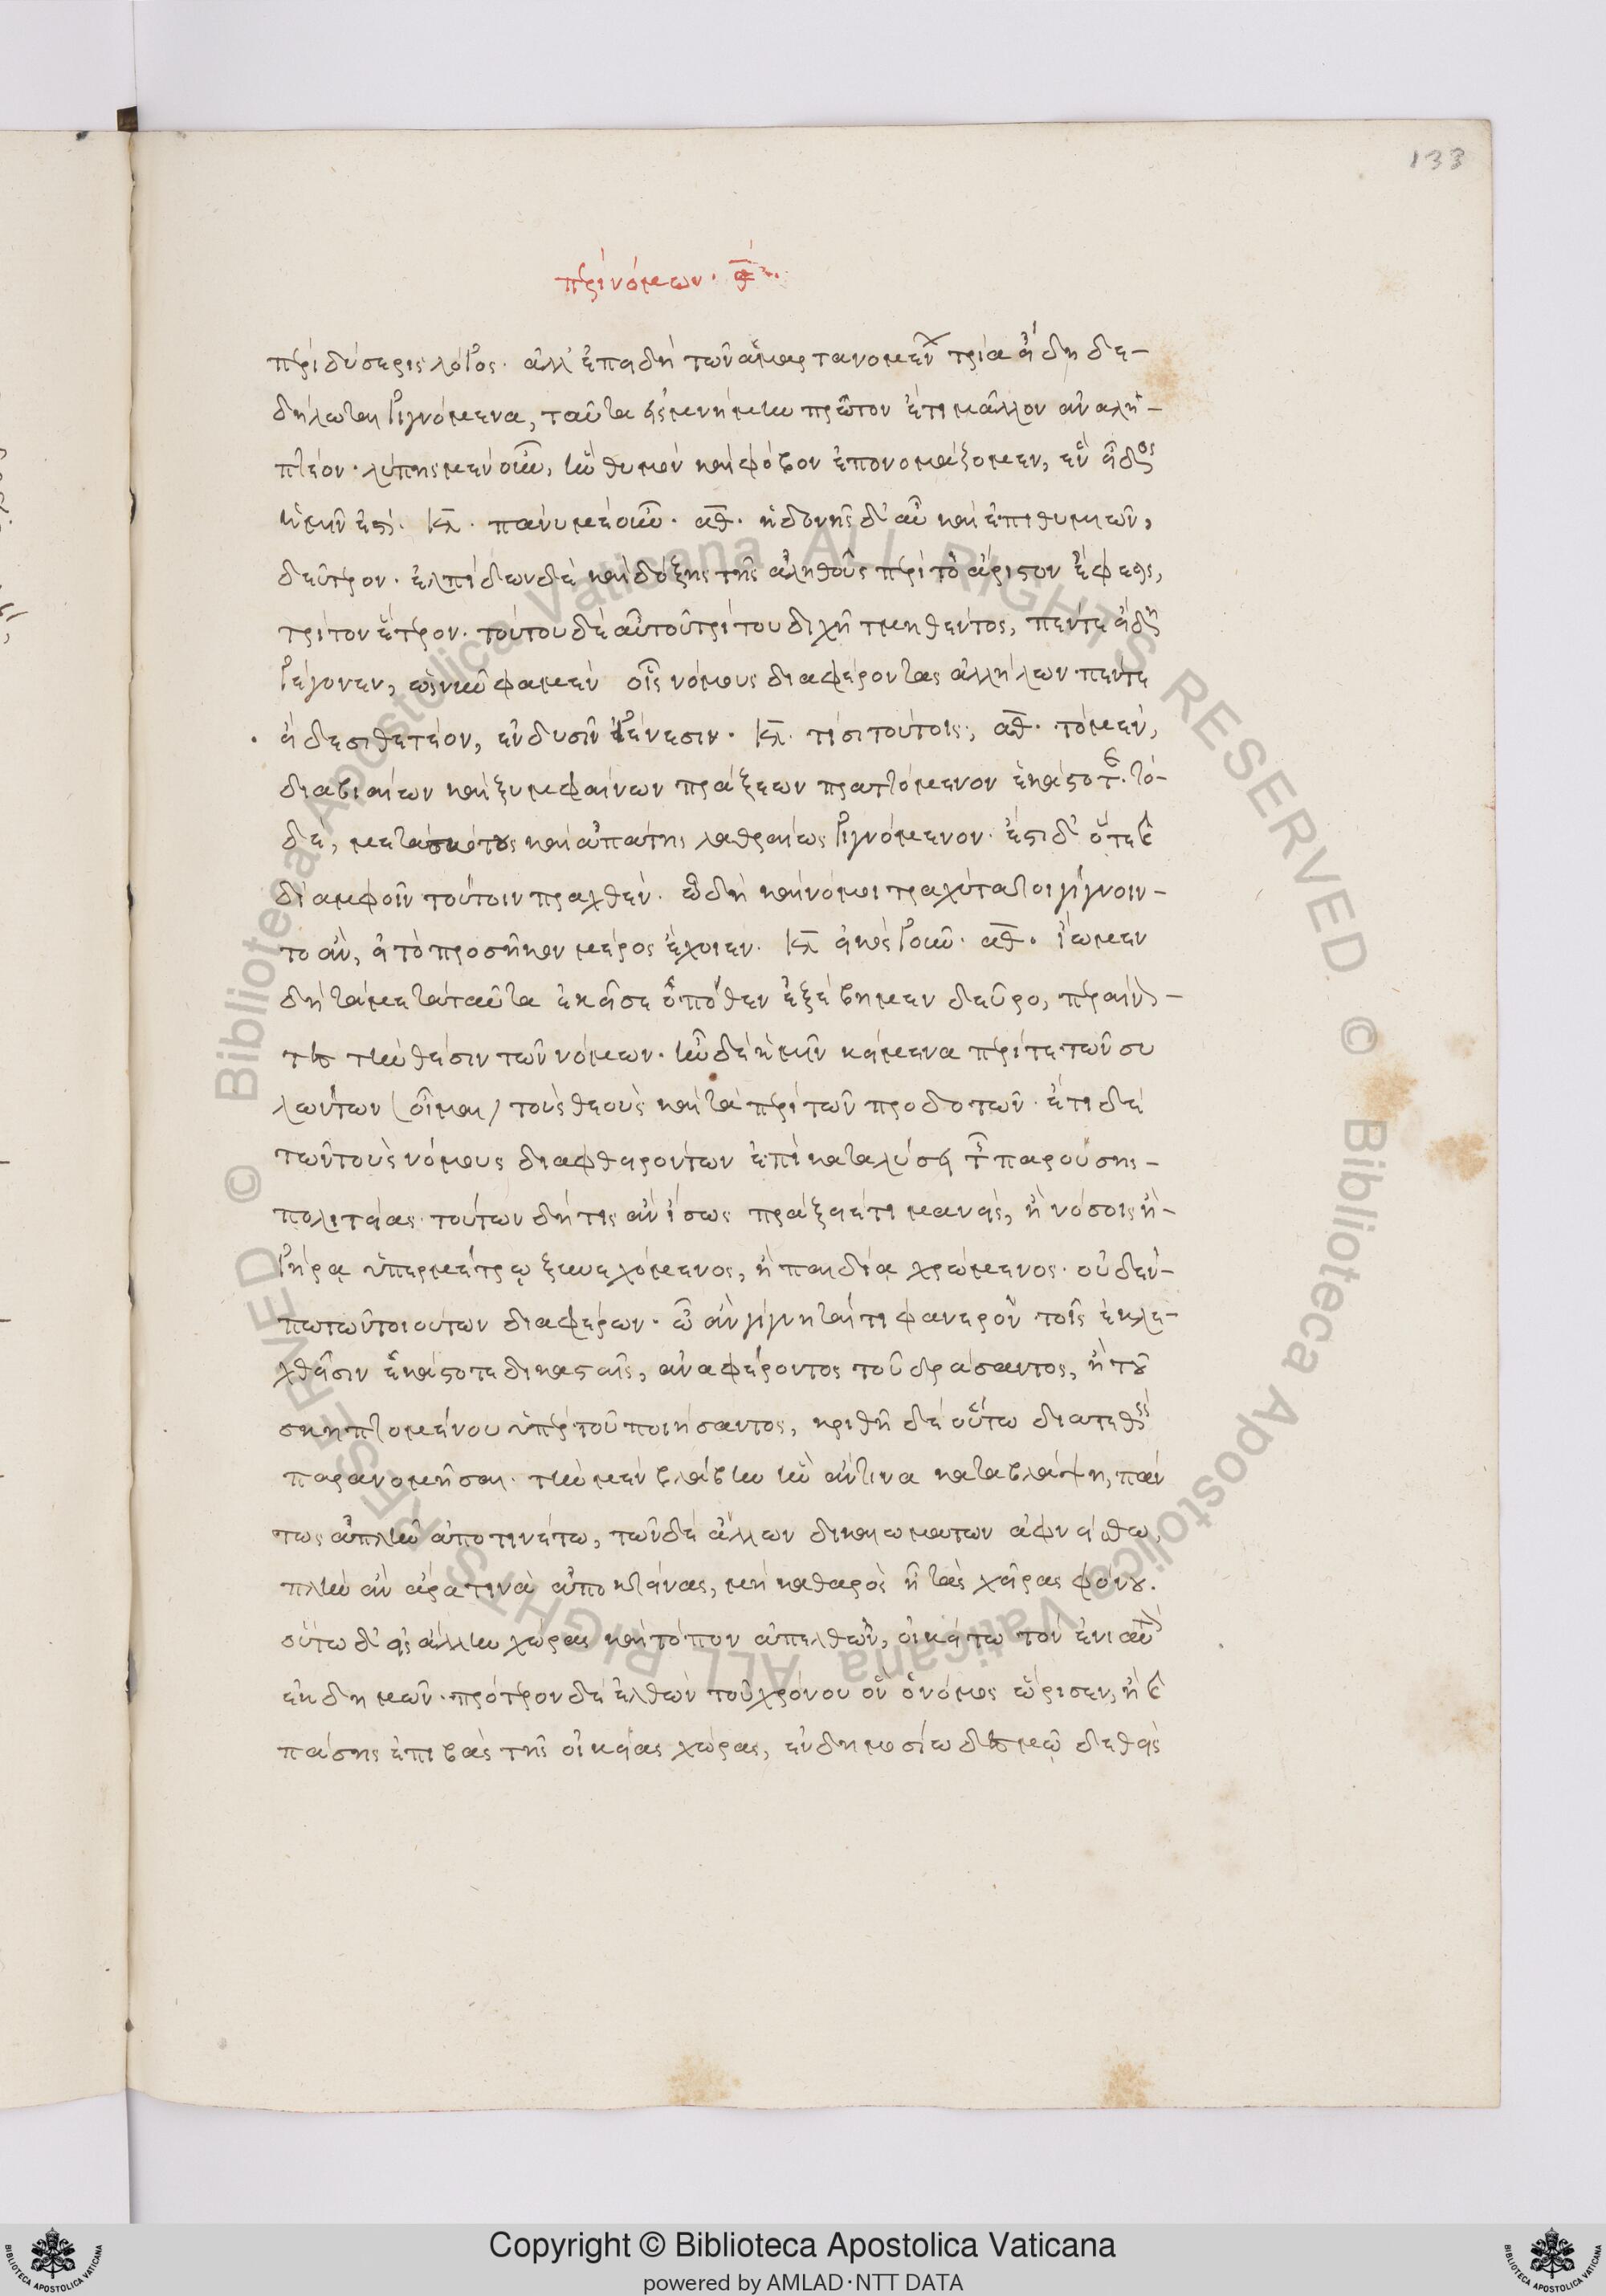 133
περὶ νόμων. θ̅
περὶ δύσερις λόγος. ἀλλ' ἐπειδὴ τῶν ἁμαρτανομένων τρία εἴδη δε-
δήλωται γιγνόμενα, ταῦτα εἰς μνήμην πρῶτον ἔτι μᾶλλον ἀναλη-
πτέον. λύπης μὲν οὖν, ἣν θυμὸν καὶ φόβον ἐπονομάζομεν, ἓν εἶδος
ἡμῖν ἐστί. κλ. πάνυ μὲν οὖν. αθ. ἡδονῆς δ' αὖ καὶ ἐπιθυμιῶν,
δεύτερον. ἐλπίδων δὲ καὶ δόξης τῆς ἀληθοῦς περὶ τὸ ἄριστον ἔφεσις,
τρίτον ἕτερον. τούτου δὲ αὐτοῦ τρίτου διχῆ τμηθέντος, πέντε εἴδη
γέγονεν, ὡς νῦν φαμὲν οἷς νόμους διαφέροντας ἀλλήλων πέντε
εἴδεσι θετέον, ἐν δυσὶν γένεσιν. κλ. τίσι τούτοις; αθ. τὸ μὲν,
διὰ βιαίων καὶ ξυμφαίνων πράξεων πραττόμενον ἑκάστοτε. τὸ
δὲ, μετὰ σκότους καὶ ἀπάτης λαθραίως γιγνόμενον. ἔστι δ' ὅτε καὶ
δι' ἀμφοῖν τούτοιν πραχθέν. ᾧ δὴ καὶ νόμοι τραχύτατοι γίγνοιν-
το ἄν, εἰ τὸ προσῆκον μέρος ἔχοιεν. κλ εἰκὸς γοῦν. αθ. ἴωμεν
δὴ τὰ μετὰ ταῦτα ἐκεῖσε ὁπόθεν ἐξέβημεν δεῦρο, περαίνον-
τες τὴν θέσιν τῶν νόμων. ἦν δὲ ἡμῖν κείμενα περί τε τῶν συ
λώντων (οἶμαι) τοὺς θεοὺς καὶ τὰ περὶ τῶν προδοτῶν. ἔτι δὲ
τῶν τοὺς νόμους διαφθειρόντων ἐπὶ καταλύσει τῆς παρούσης-
πολιτείας. τούτων δή τις ἂν ἴσως πράξειέ τι μανείς, ἢ νόσοις ἢ-
γήρᾳ ὑπερμέτρῳ ξυνεχόμενος, ἢ παιδίᾳ χρώμενος. οὐδέν-
πω τῶν τοιούτων διαφέρων. ὧν ἂν γίγνηταί τι φανερὸν τοῖς ἐκλε-
χθεῖσιν ἑκάστοτε δικασταῖς, ἀναφέροντος τοῦ δράσαντος, ἢ τοῦ
σκηπτομένου ὑπὲρ τοῦ ποιήσαντος, κριθῇ δὲ οὕτω διατεθεὶς
παρανομῆσαι. τὴν μὲν βλάβην ἣν ἄν τινα καταβλάψῃ, πάν
τως ἁπλῆν ἀποτινέτω, τῶν δὲ ἄλλων δικαιωμάτων ἀφείσθω,
πλὴν ἂν ἄρα τινὰ ἀποκτείνας, μὴ καθαρὸς ᾖ τὰς χεῖρας φόνου.
οὕτω δ' εἰς ἄλλην χώραν καὶ τόπον ἀπελθών, οἰκείτω τὸν ἐνιαυτὸν
ἐκδημῶν. πρότερον δὲ ἐλθὼν τοῦ χρόνου ὃν ὁ νόμος ὥρισεν, ἢ καὶ
πάσης ἐπιβὰς τῆς οἰκείας χώρας, ἐν δημοσίω δεσμῷ δεθεὶς
Copyright © Biblioteca Apostolica Vaticana
powered by AMLAD·NTT DATA
© Biblioteca Apostolica Vaticana ALL RIGHTS RESERVED
© Biblioteca Apostolica Vaticana ALL RIGHTS RESERVED
BIBLIOTECA APOSTOLICA VATICANA
BIBLIOTECA APOSTOLICA VATICANA